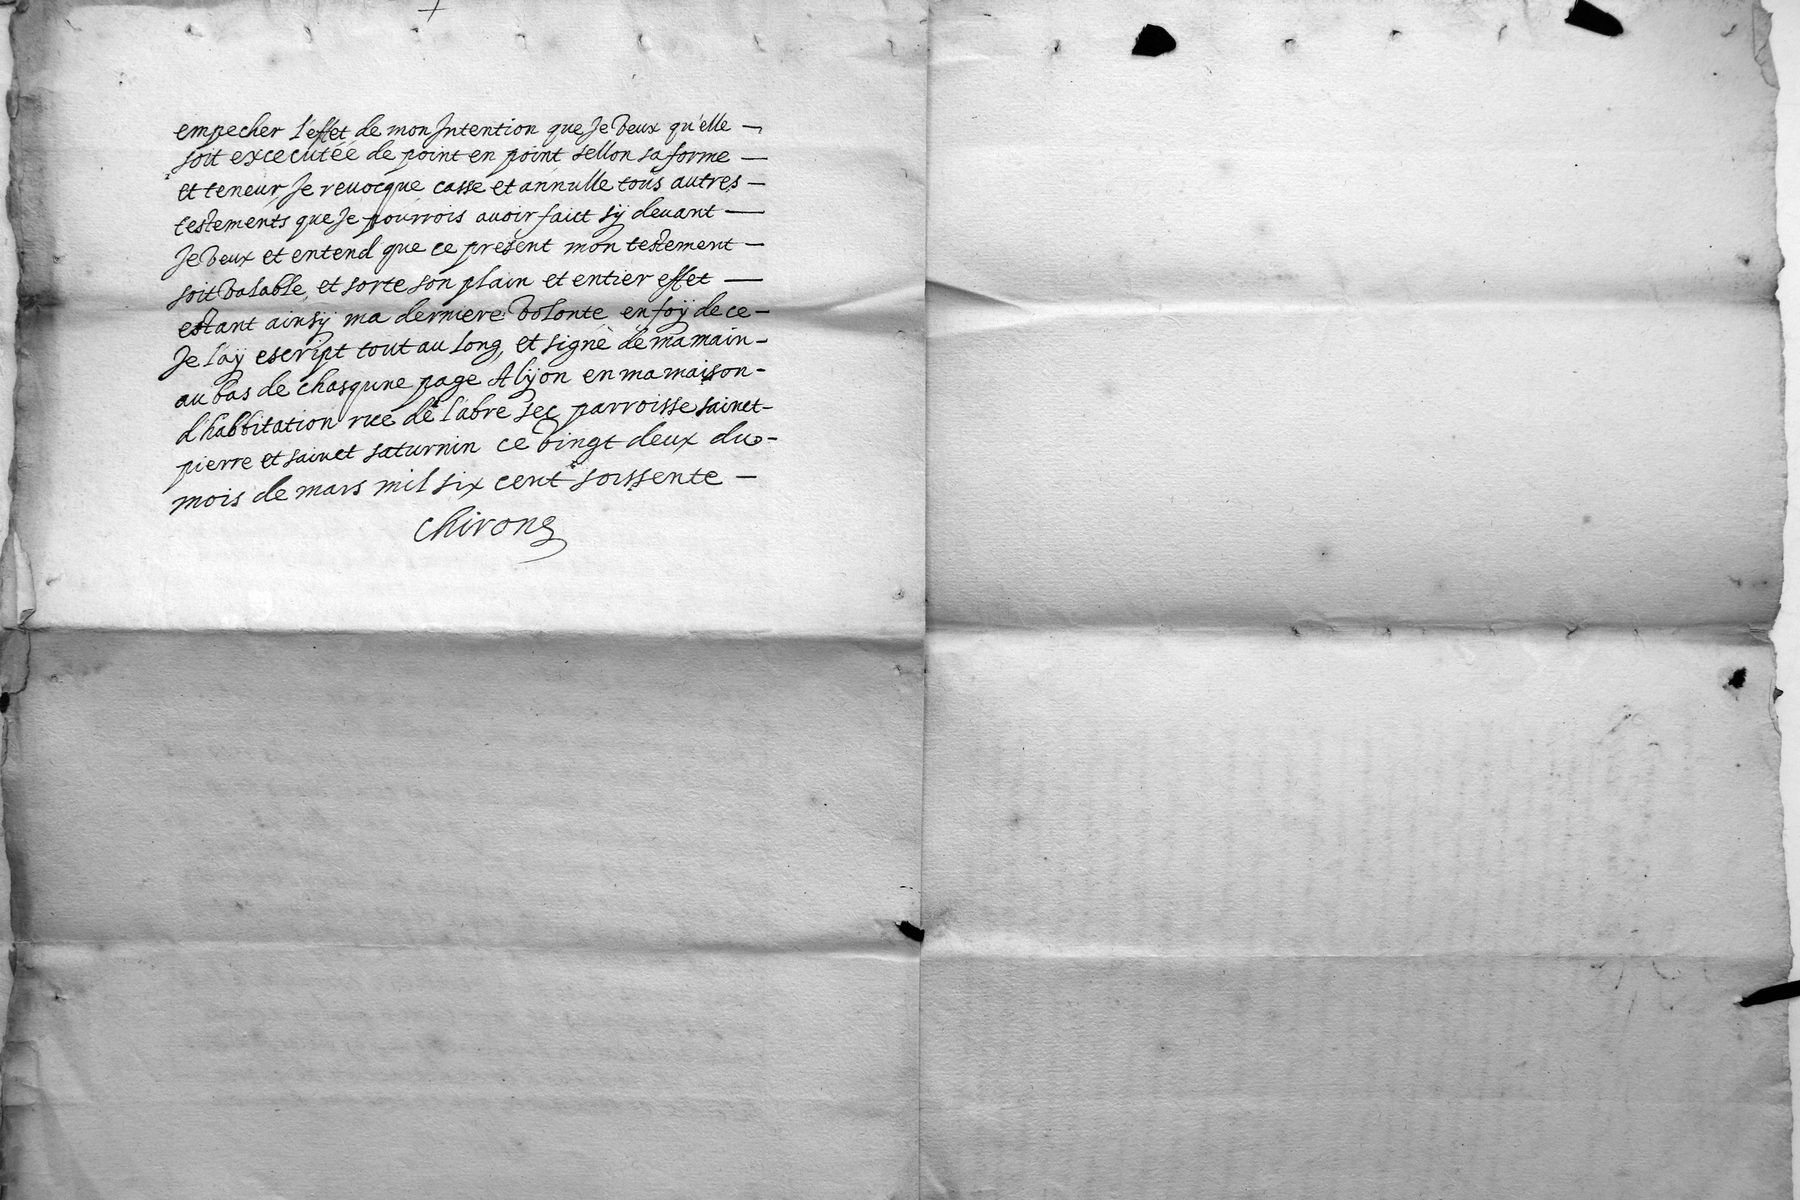 empecher l'effet de mon Jntention que Je veux qu'elle —
soit excecutéé de point en point sellon sa forme —
et teneur, Je revocque casse et annulle tous autres —
testements que Je pourrois avoir faict sÿ devant —
Je veux et entend que ce present mon testement —
soit valable, et sorte son plain et entier effet —
estant ainsÿ ma derniere volonté en foÿ de ce —
Je l'aÿ escript tout au long, et signé de ma main —
au bas de chasqune page A lÿon en ma maison —
d'habbitation rue de l'abre sec parroisse sainct —
pierre et sainct saturnin ce vingt deux du —
mois de mars mil six cent soissente —
Chirong